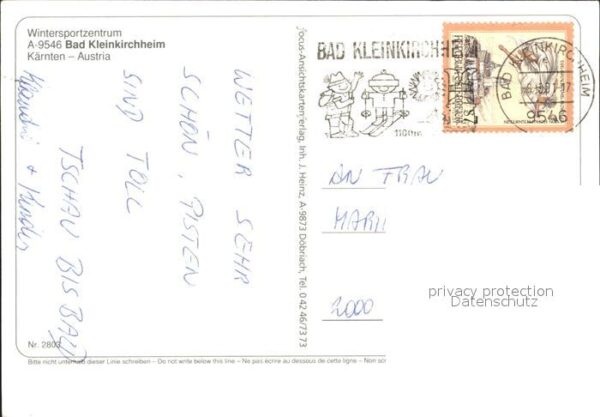 Wintersportzentrum
A-9546 Bad Kleinkirchheim
Kärnten – Austria
WETTER SEHR
SCHÖN, PISTEN
SIND TOLL
TSCHAU BIS BALD
+ Kinder
Nr. 2803
Focus-Ansichtskartenverlag, Inh. J. Heinz, A-9873 Döbriach, Tel. 0 42 46/73 73
BAD KLEINKIRCHHEIM
1100m
BAD KLEINKIRCHHEIM
9546
AN FRAU
MARI
2000
privacy protection
Datenschutz
Bitte nicht unterhalb dieser Linie schreiben – Do not write below this line – Ne pas écrire au dessous de cette ligne – Non